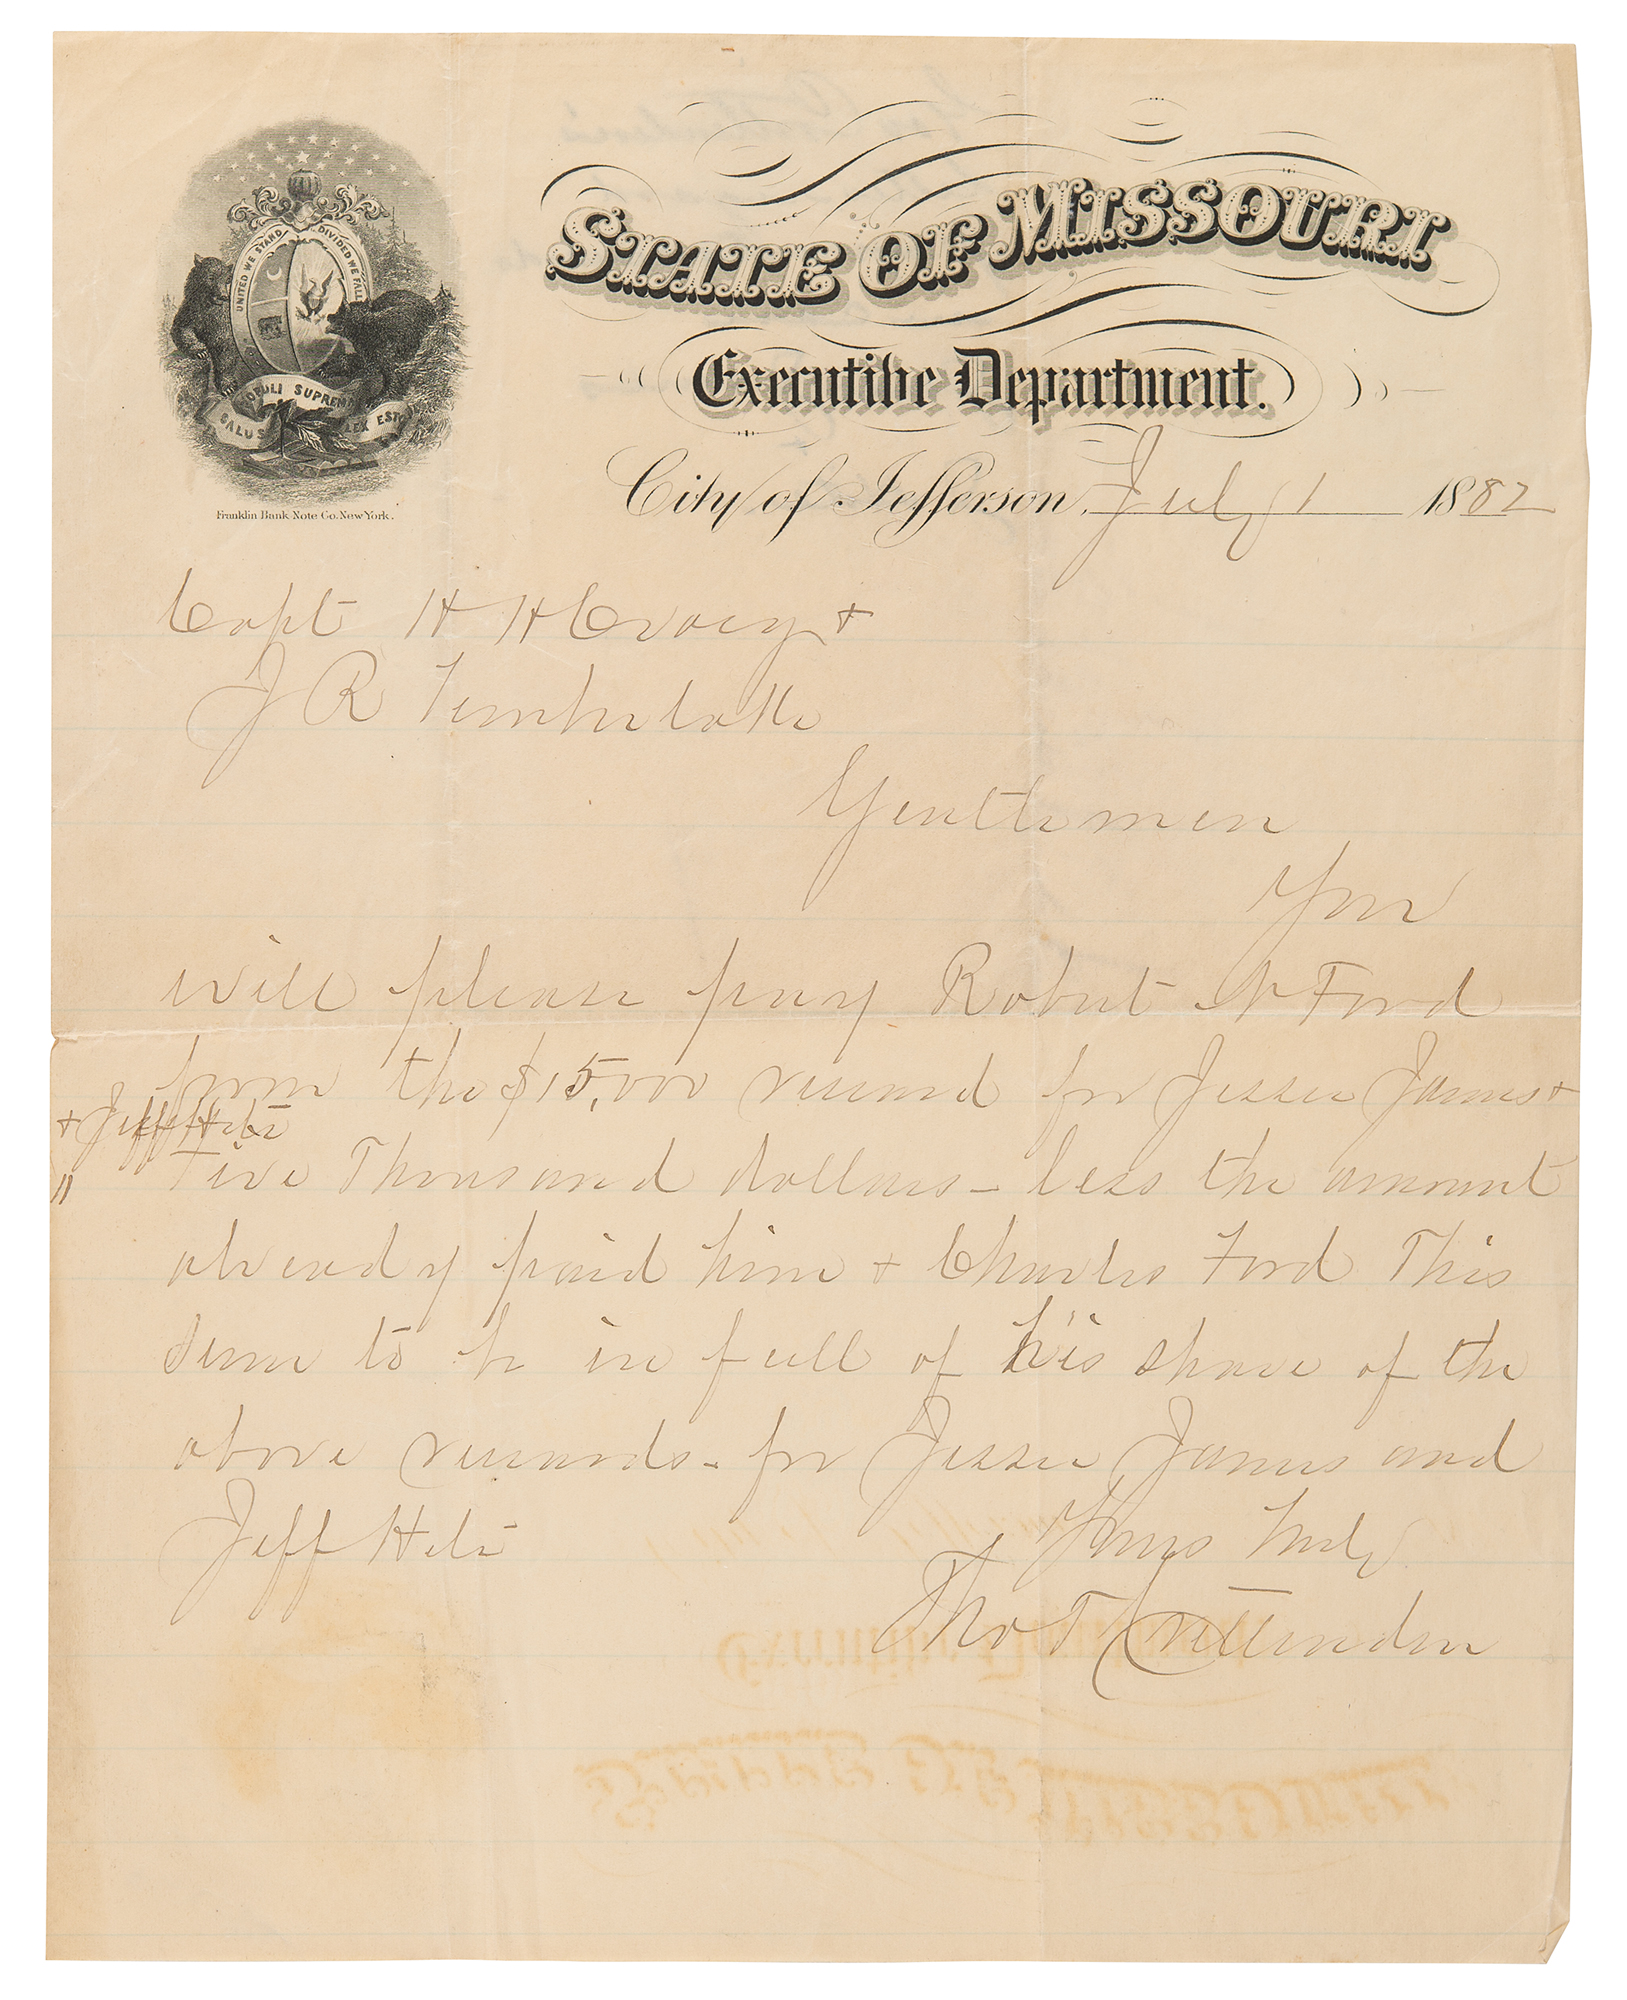 UNITED WE STAND DIVIDED WE FALL
SALUS POPULI SUPREMA LEX ESTO
Franklin Bank Note Co. New York.
STATE OF MISSOURI
Executive Department.
City of Jefferson, July 1 1882
Capt H H Craig +
J R Timberlake
Gentlemen
You
will please pay Robert N Ford
from the $15,000 reward for Jesse James +
+ Jeff Hite
" Five Thousand dollars - less the amount
already paid him + Charles Ford This
sum to be in full of his share of the
above rewards - for Jesse James and
Jeff Hite
Yours truly
Tho T Crittenden